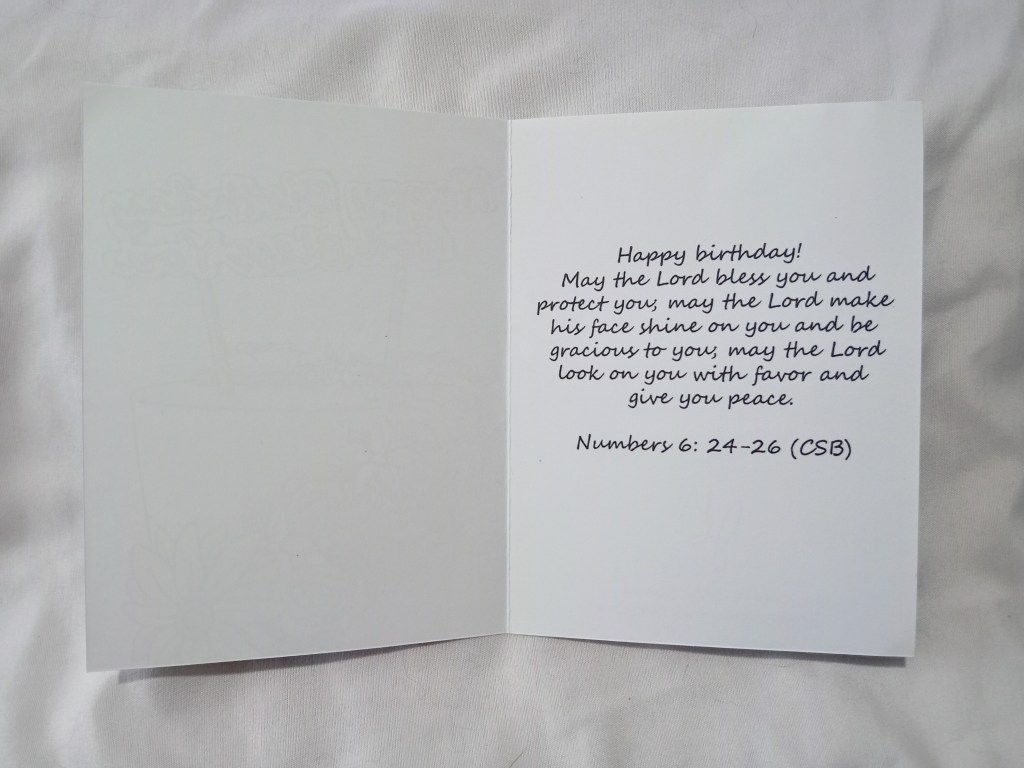 Happy birthday!
May the Lord bless you and
protect you; may the Lord make
his face shine on you and be
gracious to you; may the Lord
look on you with favor and
give you peace.
Numbers 6: 24-26 (CSB)